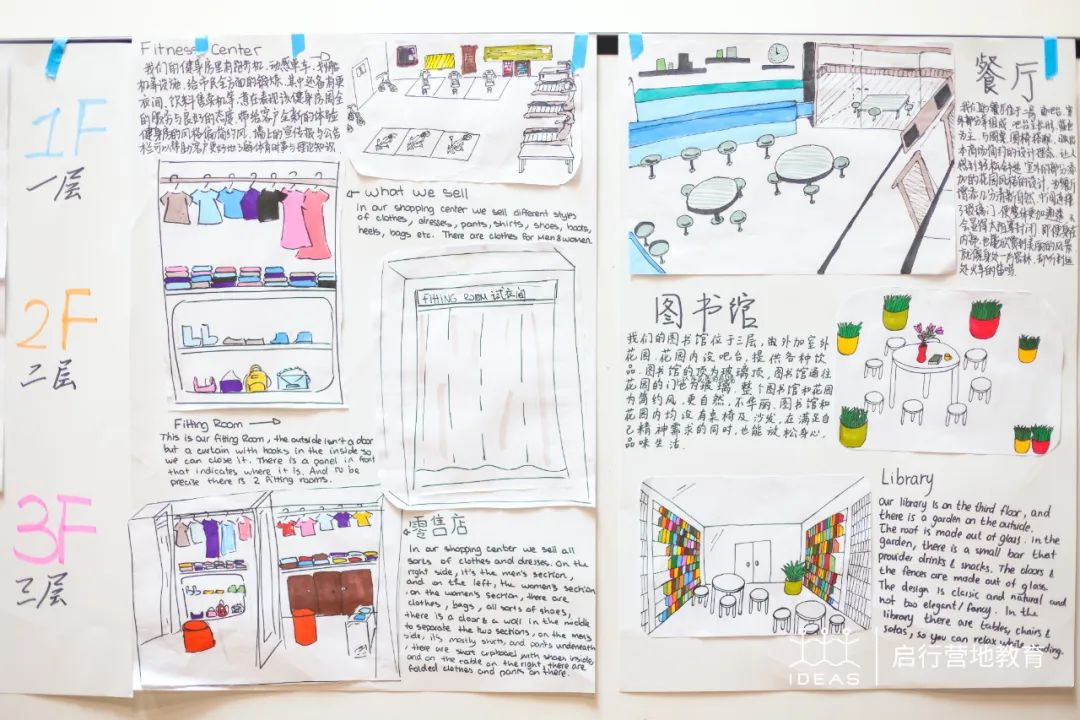 1F
一层
2F
二层
3F
三层
Fitness Center
我们的健身房里有跑步机、动感单车、划船
机等设施，给市民全方面的锻炼，其中还备有更
衣间、饮料售架机等，
健身房的风格偏简约风，墙上的宣传报与公告
栏可以帮助客户更好地了解体育时事与理论知识
What we sell
In our shopping center we sell different styles
of clothes, dresses, pants, shirts, shoes, boots,
heels, bags etc. There are clothes for Men & women.
FITTING ROOM 试衣间
Fitting Room
This is our fitting Room, the outside isn't a door
but a curtain with hooks in the inside so
we can close it. There is a panel in front
that indicates where it is. And to be
precise there is 2 fitting rooms.
零售店
In our shopping center we sell all
sorts of clothes and dresses. On the
right side, it's the men's section,
and on the left, the women's section
on the women's section, there are
clothes, bags, all sorts of shoes,
there is a door & a wall in the middle
to separate the two sections, on the men's
side, it's mostly shirts, and pants underneath
, there are short cupboard with shoes inside
and on the table on the right, there are
folded clothes and pants on there.
餐厅
我们的餐厅位于二层，由吧台、室
本商场简约的设计理念，让人
加的花园风格的设计，为餐厅
增添几分清新自然，中间连接
图书馆
我们的图书馆位于三层，做外加室外
花园，花园内设吧台，提供各种饮
品。图书馆的顶为玻璃顶，图书馆通往
花园的门也为玻璃。整个图书馆和花园
为简约风，更自然，不华丽。图书馆和
花园内均设有桌椅及沙发，在满足自
己精神需求的同时，也能放松身心，
品味生活。
Library
Our library is on the third floor, and
there is a garden on the outside.
The roof is made out of glass. In the
garden, there is a small bar that
provider drinks & snacks. The doors &
the fences are made out of glass.
The design is clasic and natural and
not too elegant/fancy. In the
library there are tables, chairs &
sofas, so you can relax while reading.
IDEAS
启行营地教育